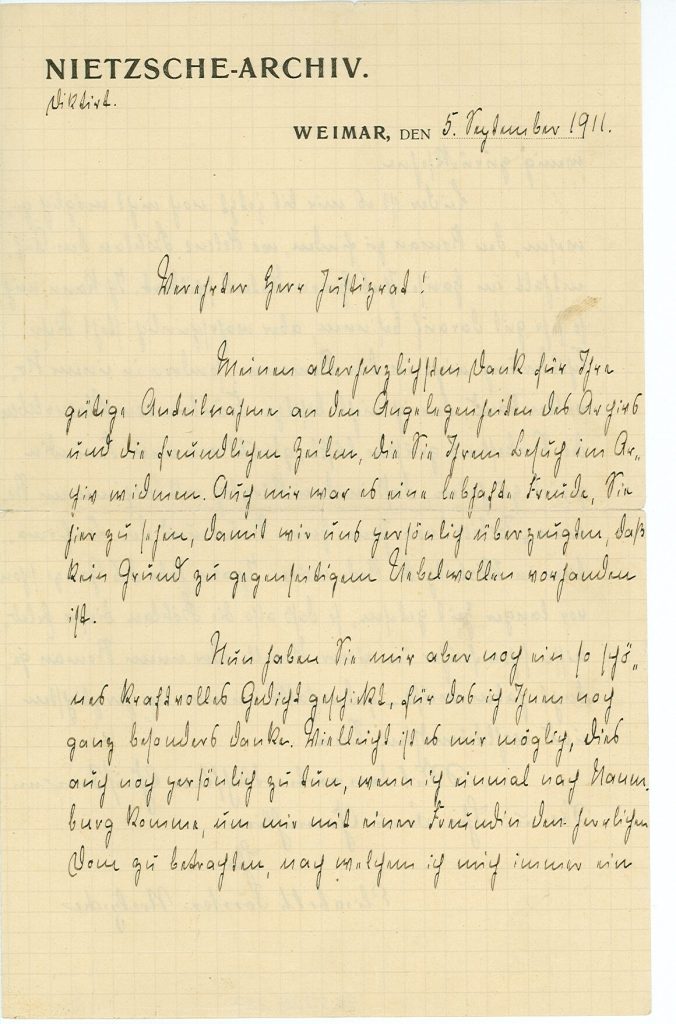 NIETZSCHE-ARCHIV.
Diktirt.
WEIMAR, DEN 5. September 1911.
Verehrter Herr Justizrat!
Meinen allerherzlichsten Dank für Ihre
gütige Anteilnahme an den Angelegenheiten des Archivs
und die freundlichen Zeilen, die Sie Ihrem Besuch im Ar-
chiv widmen. Auch mir war es eine lebhafte Freude, Sie
hier zu sehen, damit wir uns persönlich überzeugten, daß
kein Grund zu gegenseitigem Uebelwollen vorhanden
ist.
Nun haben Sie mir aber noch ein so schö-
nes kraftvolles Gedicht geschickt, für das ich Ihnen noch
ganz besonders danke. Vielleicht ist es mir möglich, dies
auch noch persönlich zu tun, wenn ich einmal nach Naum-
burg komme, um mir mit einer Freundin den herrlichen
Dom zu betrachten, nach welchem ich mich immer ein